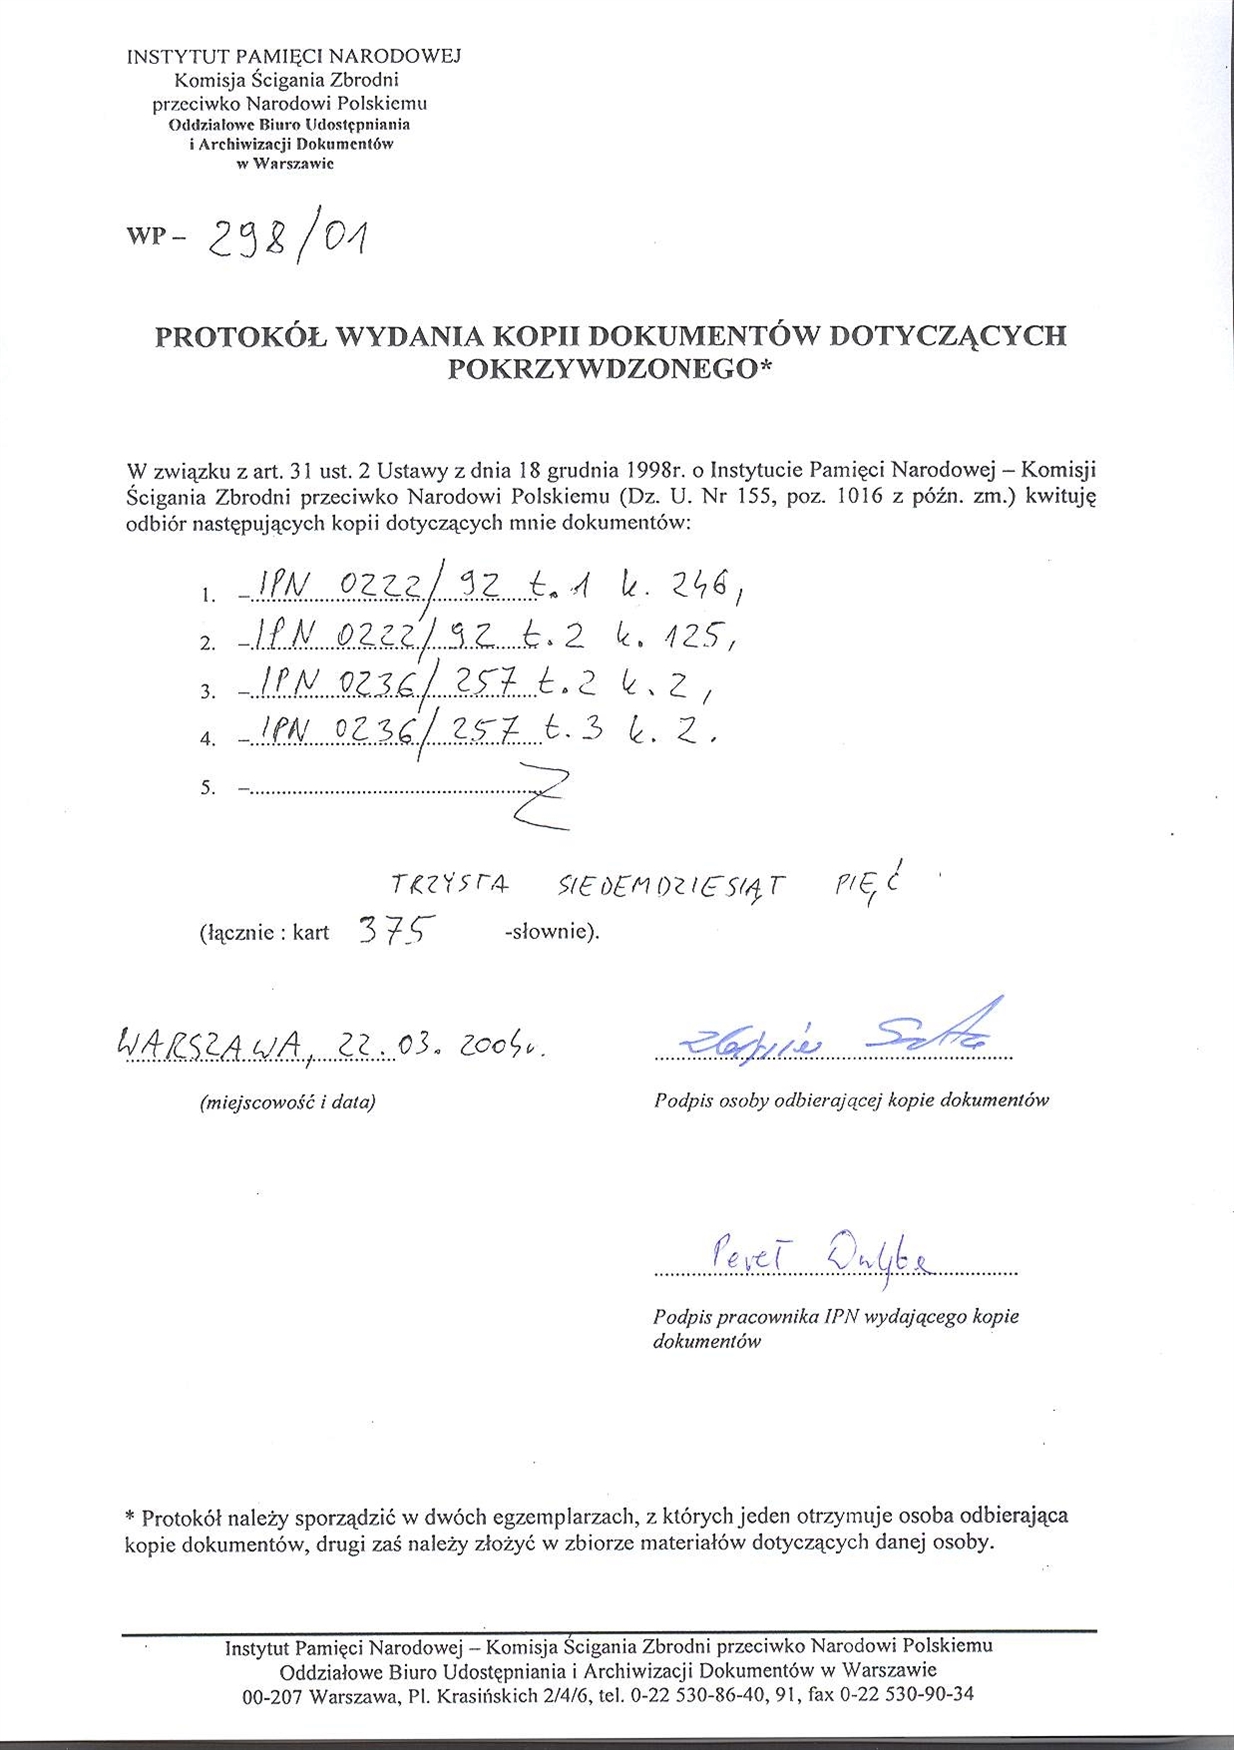 INSTYTUT PAMIĘCI NARODOWEJ
Komisja Ścigania Zbrodni
przeciwko Narodowi Polskiemu
Oddziałowe Biuro Udostępniania
i Archiwizacji Dokumentów
w Warszawie
WP – 298/01
PROTOKÓŁ WYDANIA KOPII DOKUMENTÓW DOTYCZĄCYCH
POKRZYWDZONEGO*
W związku z art. 31 ust. 2 Ustawy z dnia 18 grudnia 1998r. o Instytucie Pamięci Narodowej – Komisji
Ścigania Zbrodni przeciwko Narodowi Polskiemu (Dz. U. Nr 155, poz. 1016 z późn. zm.) kwituję
odbiór następujących kopii dotyczących mnie dokumentów:
1. – IPN 0222/92 t.1 k. 246,
2. – IPN 0222/92 t.2 k. 125,
3. – IPN 0236/257 t.2 k. 2,
4. – IPN 0236/257 t.3 k. 2.
5. –
TRZYSTA SIEDEMDZIESIĄT PIĘĆ
(łącznie : kart 375 -słownie).
WARSZAWA, 22.03.
(miejscowość i data)
Podpis osoby odbierającej kopie dokumentów
Paweł
Podpis pracownika IPN wydającego kopie
dokumentów
* Protokół należy sporządzić w dwóch egzemplarzach, z których jeden otrzymuje osoba odbierająca
kopie dokumentów, drugi zaś należy złożyć w zbiorze materiałów dotyczących danej osoby.
Instytut Pamięci Narodowej – Komisja Ścigania Zbrodni przeciwko Narodowi Polskiemu
Oddziałowe Biuro Udostępniania i Archiwizacji Dokumentów w Warszawie
00-207 Warszawa, Pl. Krasińskich 2/4/6, tel. 0-22 530-86-40, 91, fax 0-22 530-90-34